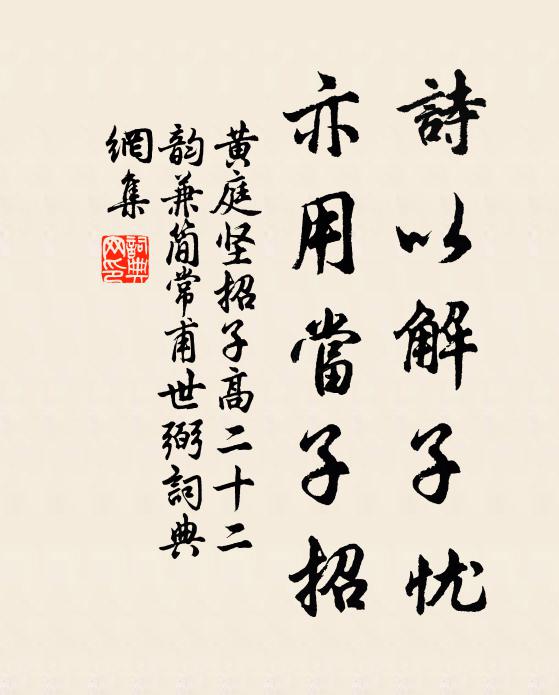 詩以解子忧
亦用當子招
黄庭坚招子高二十二
韵兼简常甫世弼詞典
網集
詞典網印